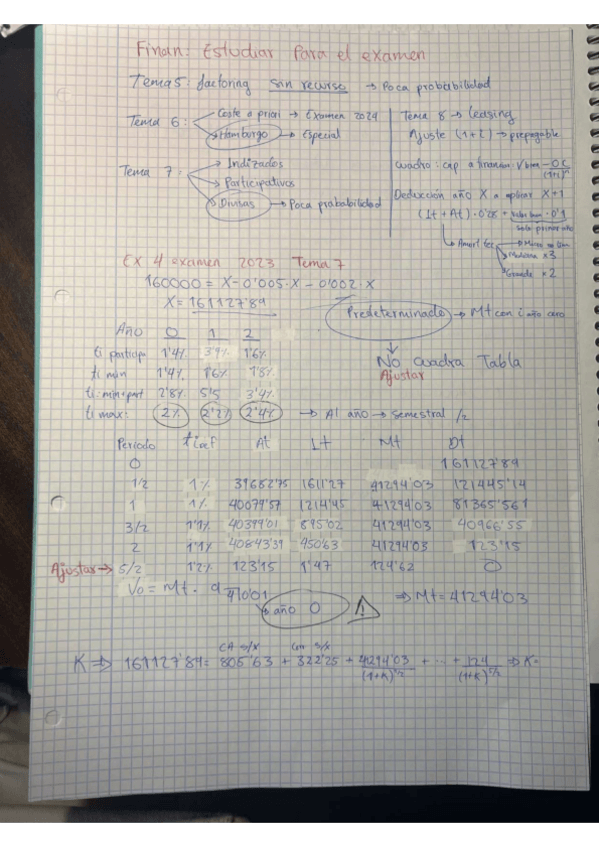 Finan: Estudiar Para el examen
Tema 5: factoring sin recurso → Poca probabilidad
Tema 6: Coste a priori → Examen 2024
Hamburgo → Especial
Tema 7: Indizados
Participativos
Divisas → Poca probabilidad
Tema 8 → Leasing
Ajuste (1+i) → prepagable
Cuadro: cap a financiar: V bien - OC/(1+i)^n
Deducción año X a aplicar X+1
(It + At) · 0'28 +
solo primer año
Amort tec
Mediana x3
Grande x2
Ex 4 examen 2023 Tema 7
160000 = X - 0'005·X - 0'002·X
X = 161127'89
Predeterminado → Mt con i año cero
No cuadra Tabla
Ajustar
Año 0 1 2
ti particip 1'4% 3'9% 1'6%
ti min 1'4% 1'6% 1'8%
ti: min+part 2'8% 5'5 3'4%
ti max: 2% 2'2% 2'4% → Al año → semestral /2
Periodo tief At It Mt Dt
0 161127'89
1/2 1% 39682'75 1611'27 41294'03 121445'14
1 1% 40079'57 1214'45 41294'03 81365'561
3/2 1'1% 40399'01 895'02 41294'03 40966'55
2 1'1% 40843'39 450'63 41294'03 123'15
Ajustar → 5/2 1'2% 123'15 1'47 124'62 0
Vo = Mt · a 4|0'01 ⇒ Mt = 41294'03
año 0
CA s/x Con s/x
K ⇒ 161127'89 = 805'63 + 322'25 + 41294'03/(1+K)^1/2 + ... + 124/(1+K)^5/2 ⇒ K·